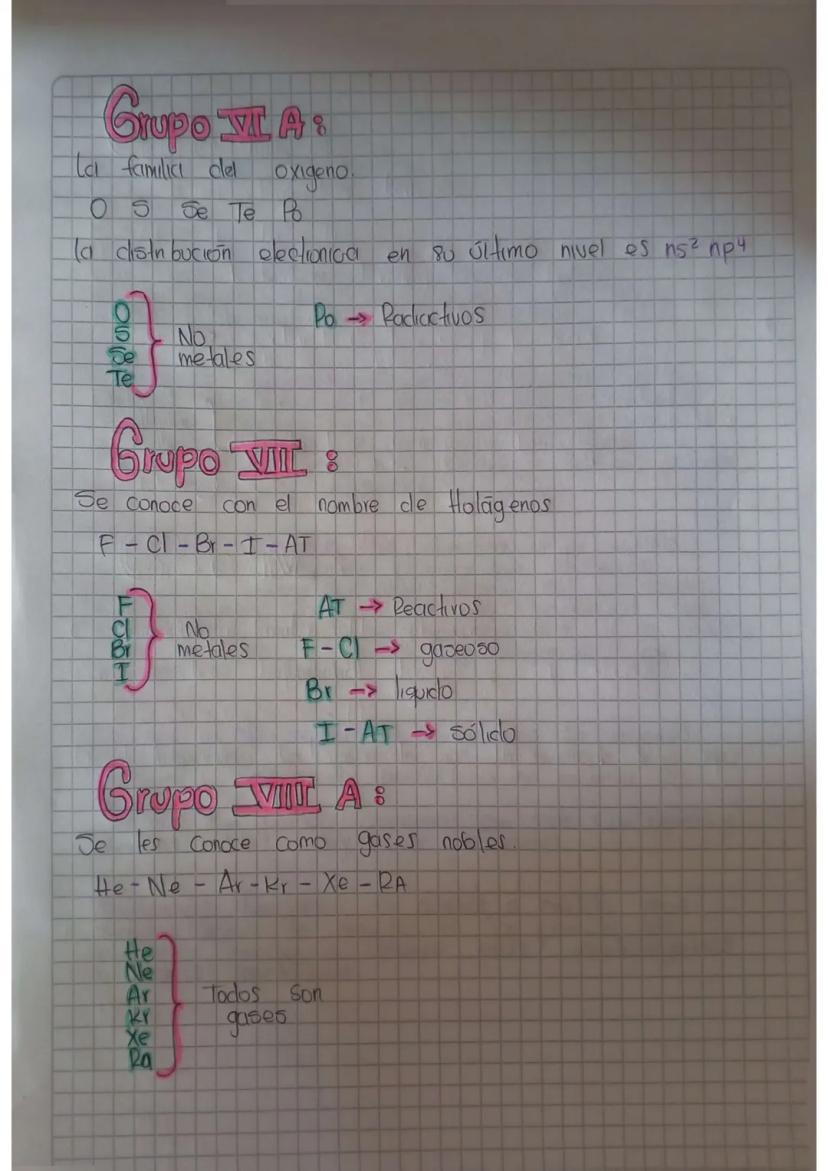 Grupo VI A:
La familia del oxigeno.
O S Se Te Po
la distribución electronica en su último nivel es ns² np⁴
O
S
Se
Te
No
metales
Po → Radiactivos
Grupo VII :
Se conoce con el nombre de Holágenos
F - Cl - Br - I - AT
F
Cl
Br
I
No
metales
AT → Reactivos
F - Cl → gaseoso
Br → liquido
I - AT → sólido
Grupo VIII A:
Se les conoce como gases nobles.
He - Ne - Ar - Kr - Xe - RA
He
Ne
Ar
Kr
Xe
Ra
Todos son
gases